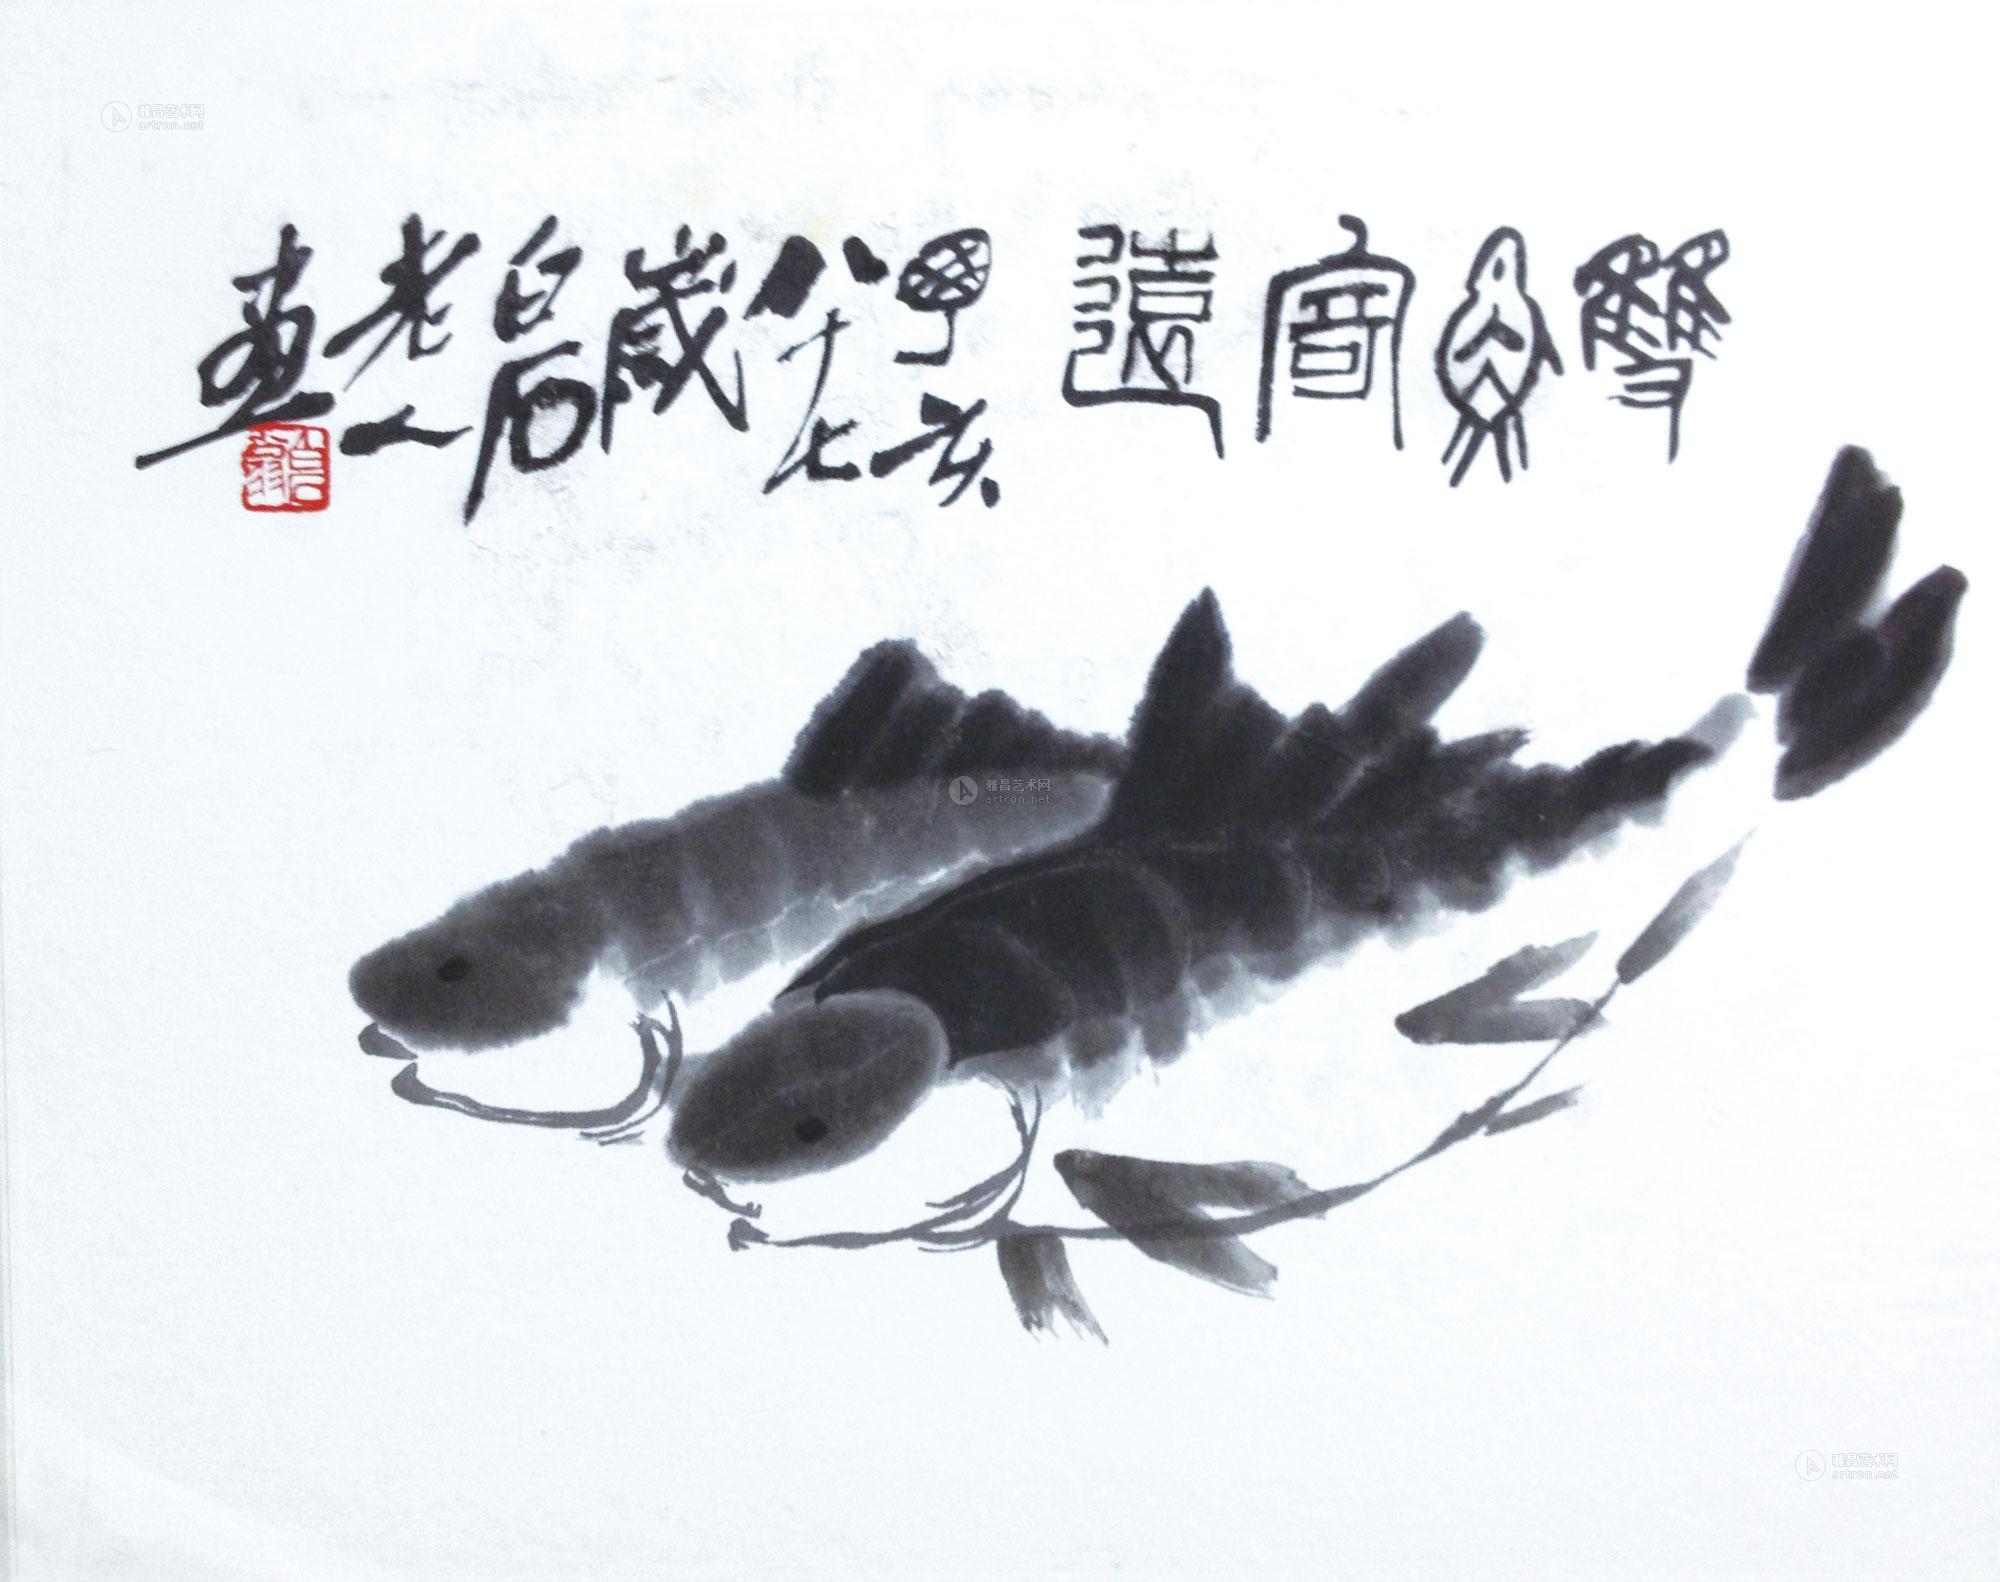 雅昌艺术网
artron.net
雙魚遠
亥
八十七
歲
白石
老人
畫
雅昌艺术网
artron.net
雅昌艺术网
artron.net